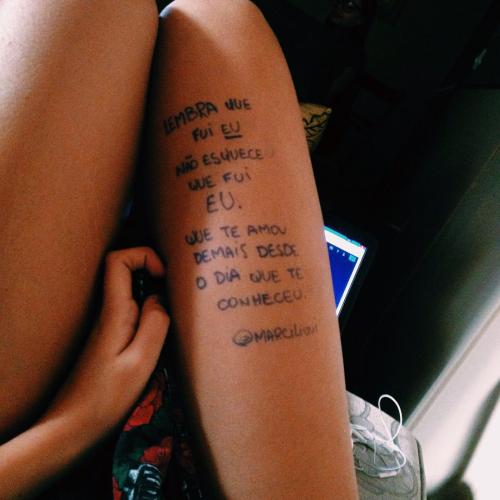 LEMBRA QUE
FUI EU
NÃO ESQUECE
QUE FUI
EU.
QUE TE AMOU
DEMAIS DESDE
O DIA QUE TE
CONHECEU.